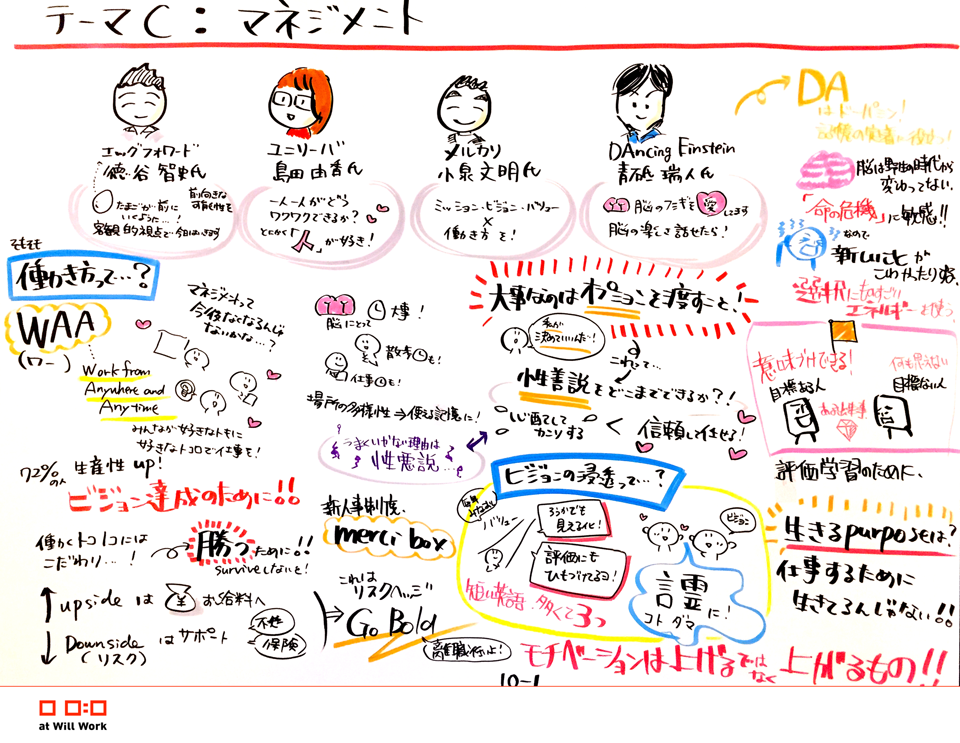 テーマC：マネジメント
エッグフォワード
徳谷 智史さん
たまごが…前に
いくように…！
前向きな
可能性を
客観的視点で今日はきます
ユニリーバ
島田 由香さん
一人一人がどう
ワクワクできるか？
とにかく「人」が好き！
メルカリ
小泉 文明さん
ミッション・ビジョン・バリュー
×
働き方を！
DAncing Einstein
青砥 瑞人さん
脳のフシギを愛してます
脳の楽しさ話せたら！
DA
はドーパミン！
脳は野生の時代から
変わってない。
「命の危機」に敏感!!
なので
新しいことが
こわかったりする
選択にものすごい
エネルギーを使う
そもそも
働き方って…？
WAA
(ワー)
Work from
Anywhere and
Any time
マネジメントって
今後なくなるんじゃ
ないかな…？
みんなが好きなトキに
好きなトコロで仕事を！
72%の人
生産性up！
ビジョン達成のために!!
脳にとって
大事！
散歩も！
仕事も！
場所の多様性⇒使える記憶に！
うまくいかない理由は
性悪説…？
大事なのはオプションを渡すこと！
私が
決めていいんだ〜！
これって…
性善説をどこまでできるか？!
心配して
カンリする
<
信頼して任せる！
意味づけできる！
目標ある人
何も思えない
目標ない人
ある出来事
評価学習のために、
働くトコロには
こだわり…！
勝つために!!
surviveしないと！
↑upsideは
¥
お給料へ
↓Downsideはサポート
(リスク)
不妊
保険
新人事制度、
merci box
これは
リスクヘッジ
Go Bold
離職停止！
ビジョンの浸透って…？
バリュー
ろうかでも
見えるトコに！
評価にも
ひもづけてるヨ！
短い英語、多くて3つ
ビジョン
言霊に！
コトダマ
生きるpurposeは？
仕事するために
生きてるんじゃない!!
モチベーションは上げるではなく上がるもの!!
10-1
at Will Work